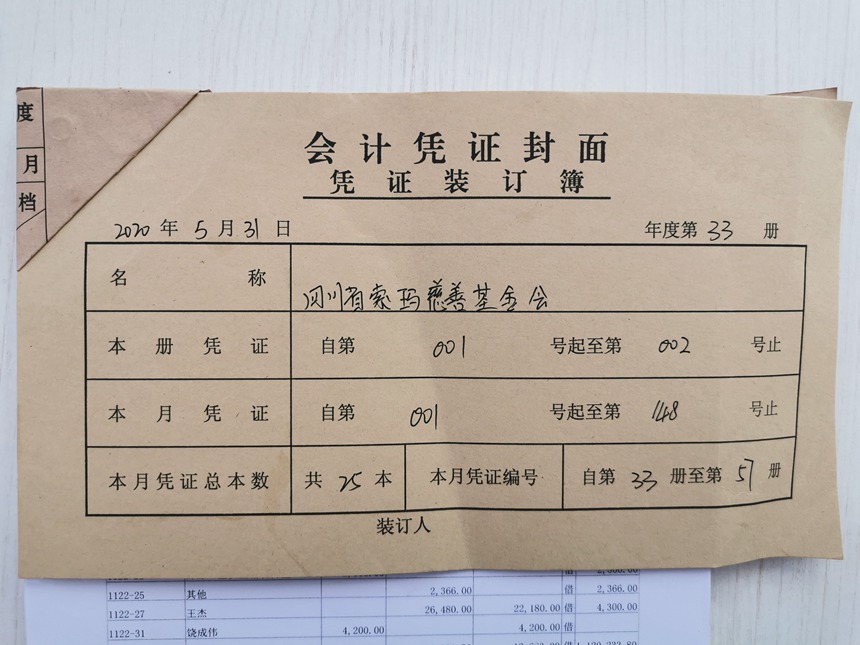 度
月
档
会计凭证封面
凭证装订簿
2020年5月31日 年度第33册
名称 四川省索玛慈善基金会
本册凭证 自第001号起至第002号止
本月凭证 自第001号起至第148号止
本月凭证总本数 共25本 本月凭证编号 自第33册至第57册
装订人
1122-25 其他 2,366.00 借 2,366.00
1122-27 王杰 26,480.00 22,180.00 借 4,300.00
1122-31 饶成伟 4,200.00 4,200.00 借